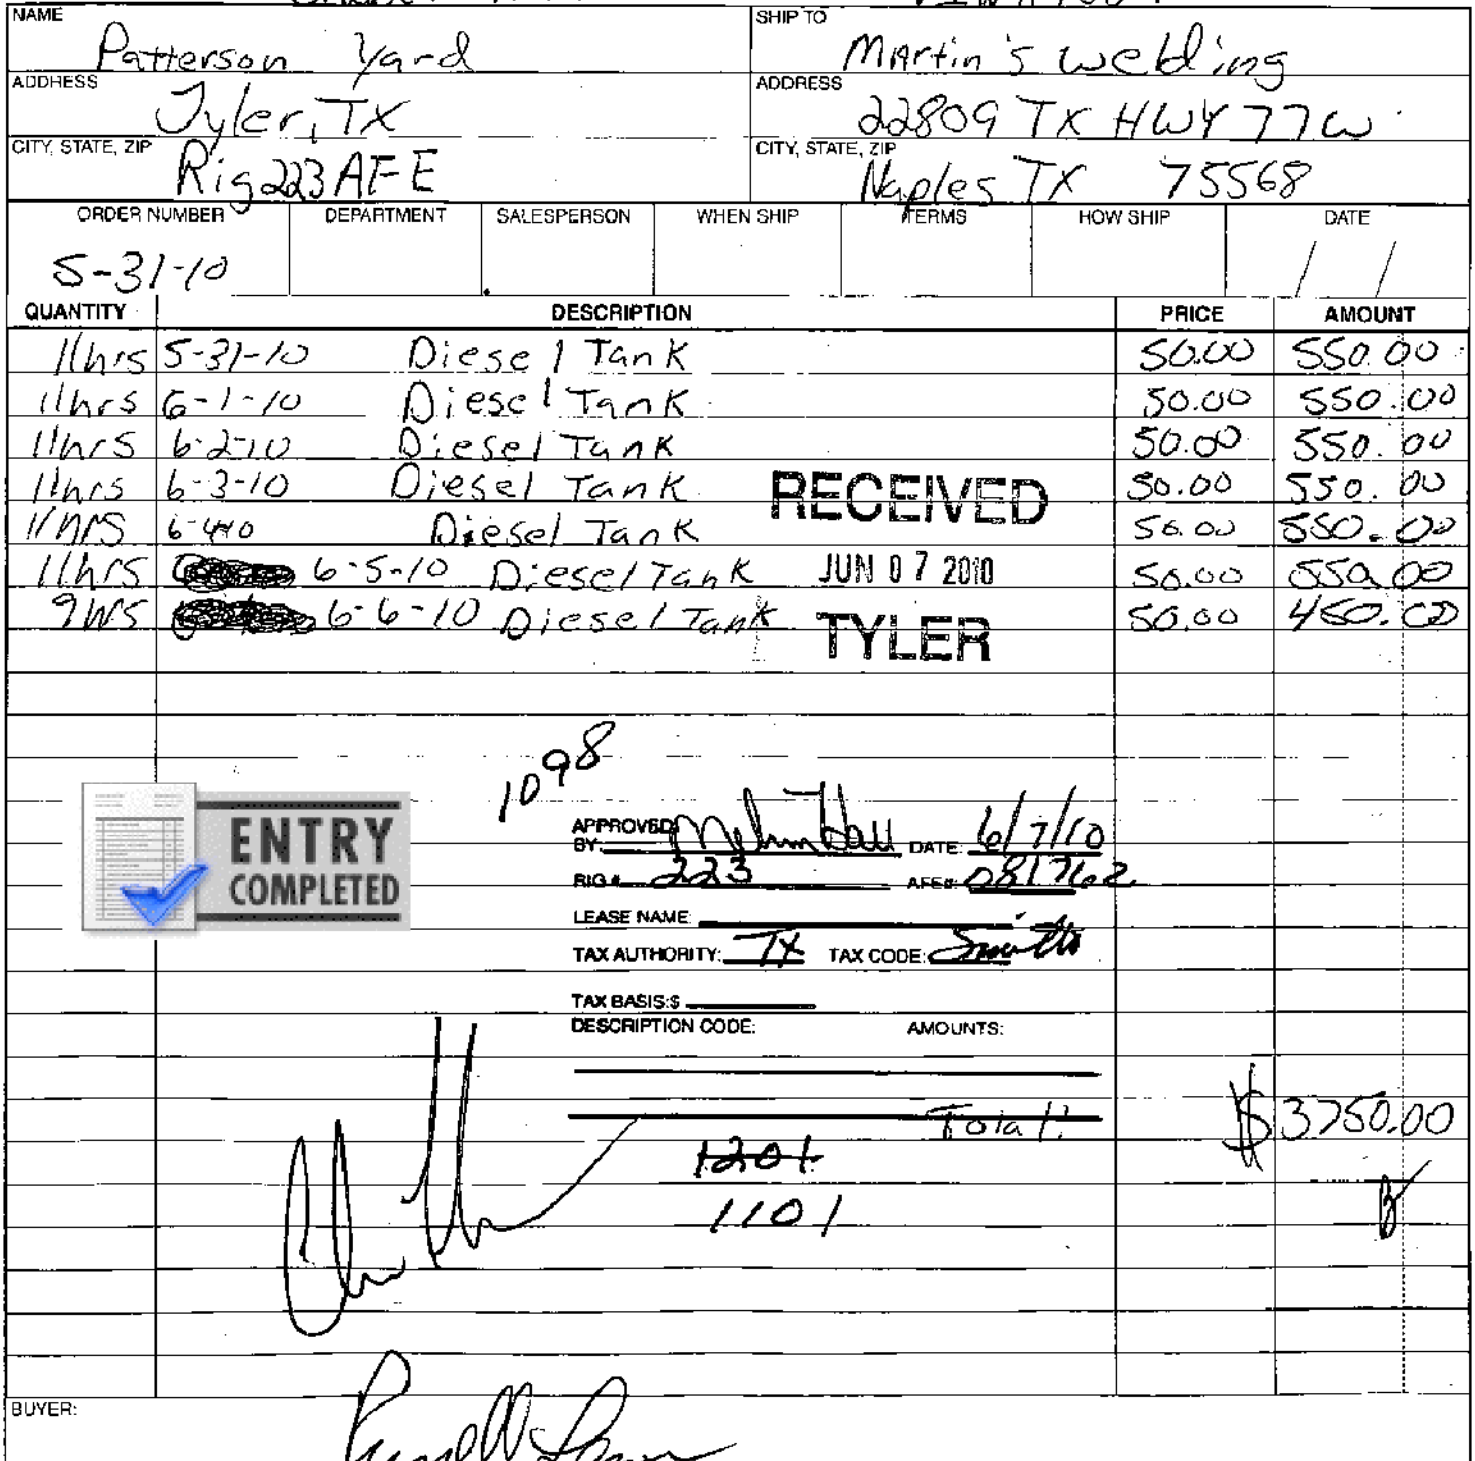 NAME Patterson Yard SHIP TO Martin's Welding
ADDRESS Tyler, TX ADDRESS 22809 TX HWY 77W
CITY, STATE, ZIP Rig 223 AFE CITY, STATE, ZIP Naples TX 75568
ORDER NUMBER DEPARTMENT SALESPERSON WHEN SHIP TERMS HOW SHIP DATE
5-31-10 / /
QUANTITY DESCRIPTION PRICE AMOUNT
11hrs 5-31-10 Diesel Tank 50.00 550.00
11hrs 6-1-10 Diesel Tank 50.00 550.00
11hrs 6-2-10 Diesel Tank 50.00 550.00
11hrs 6-3-10 Diesel Tank 50.00 550.00
11hrs 6-4-10 Diesel Tank 50.00 550.00
11hrs 6-5-10 Diesel Tank 50.00 550.00
9hrs 6-6-10 Diesel Tank 50.00 450.00
RECEIVED
JUN 07 2010
TYLER
1098
ENTRY
COMPLETED
APPROVED
BY: DATE: 6/7/10
RIG # 223 AFE#: 081762
LEASE NAME:
TAX AUTHORITY: TX TAX CODE: Smith
TAX BASIS:$
DESCRIPTION CODE: AMOUNTS:
Total: $3750.00
1201
1101
BUYER: